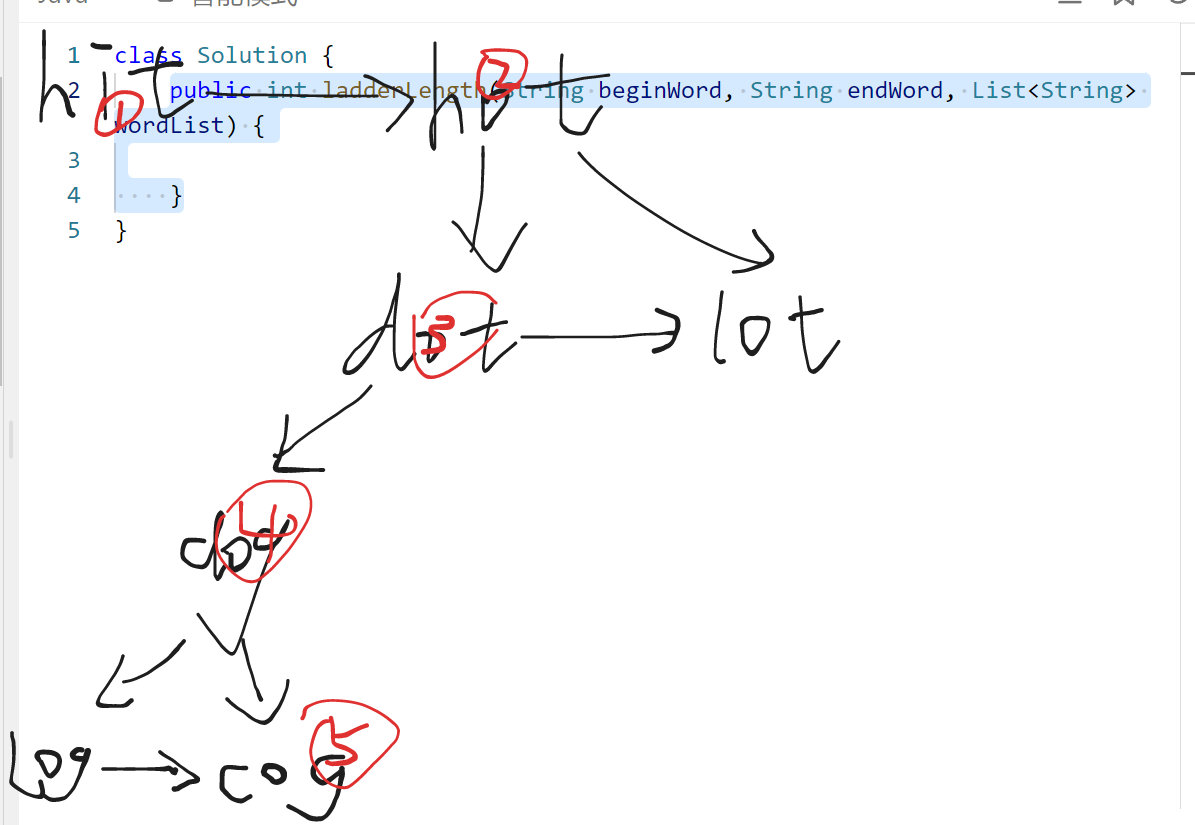 Java 智能模式
1 class Solution {
2 public int ladderLength(String beginWord, String endWord, List<String>
wordList) {
3
4 }
5 }
hit ① hot ②
dot ③ lot
dog ④
log cog ⑤